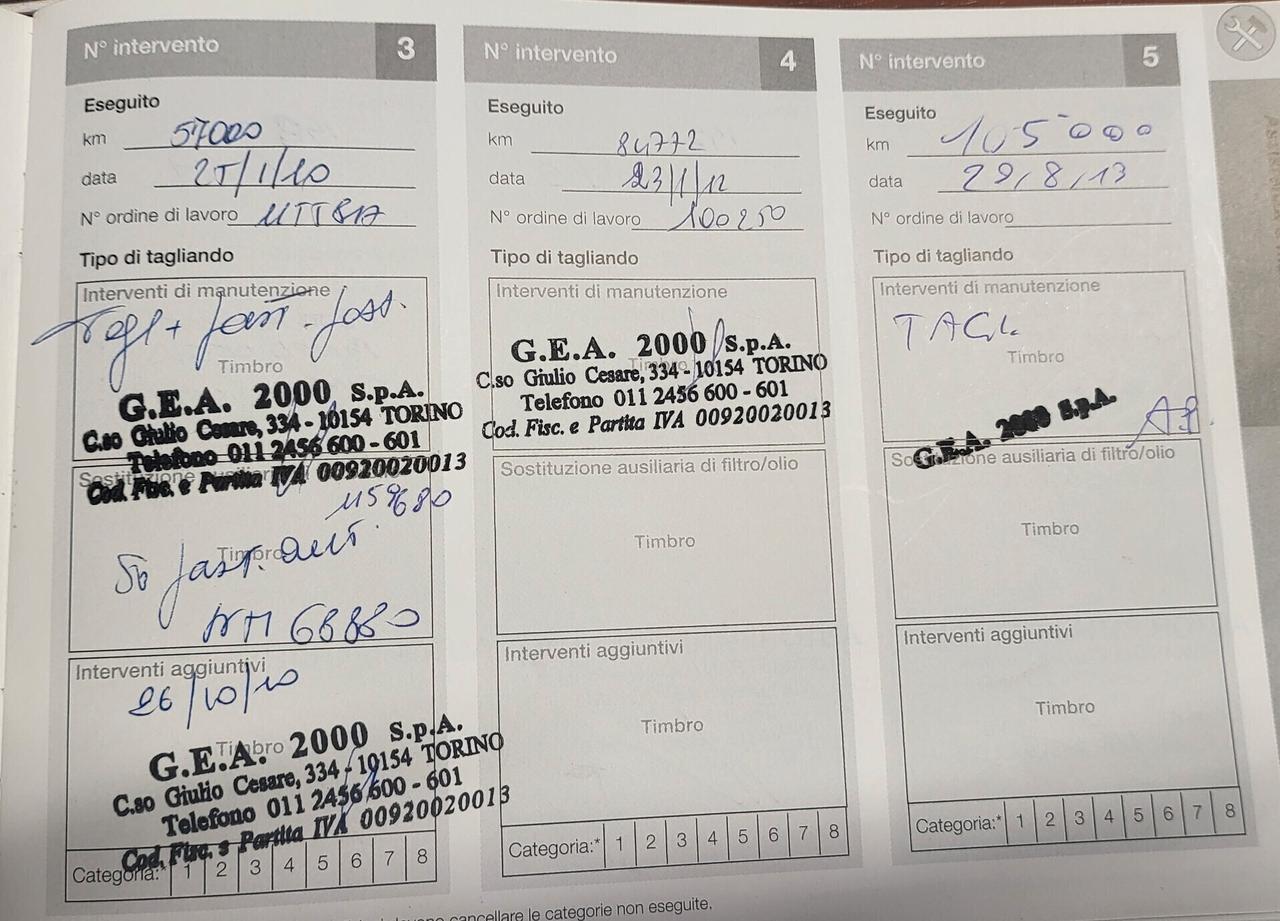 N° intervento 3
Eseguito
km 57000
data 25/1/10
N° ordine di lavoro
Tipo di tagliando
Interventi di manutenzione
Timbro
G.E.A. 2000 S.p.A.
C.so Giulio Cesare, 334 - 10154 TORINO
Telefono 011 2456 600 - 601
Cod. Fisc. e Partita IVA 00920020013
Timbro
KM 68880
Interventi aggiuntivi
26/10/10
Timbro
G.E.A. 2000 S.p.A.
C.so Giulio Cesare, 334 - 10154 TORINO
Telefono 011 2456 600 - 601
Cod. Fisc. e Partita IVA 00920020013
Categoria:* 1 2 3 4 5 6 7 8
N° intervento 4
Eseguito
km 84772
data 23/1/12
N° ordine di lavoro 100250
Tipo di tagliando
Interventi di manutenzione
Timbro
G.E.A. 2000 S.p.A.
C.so Giulio Cesare, 334 - 10154 TORINO
Telefono 011 2456 600 - 601
Cod. Fisc. e Partita IVA 00920020013
Sostituzione ausiliaria di filtro/olio
Timbro
Interventi aggiuntivi
Timbro
Categoria:* 1 2 3 4 5 6 7 8
N° intervento 5
Eseguito
km 105000
data 29/8/13
N° ordine di lavoro
Tipo di tagliando
Interventi di manutenzione
TAGL.
Timbro
G.E.A. 2000 S.p.A.
Sostituzione ausiliaria di filtro/olio
Timbro
Interventi aggiuntivi
Timbro
Categoria:* 1 2 3 4 5 6 7 8
cancellare le categorie non eseguite.